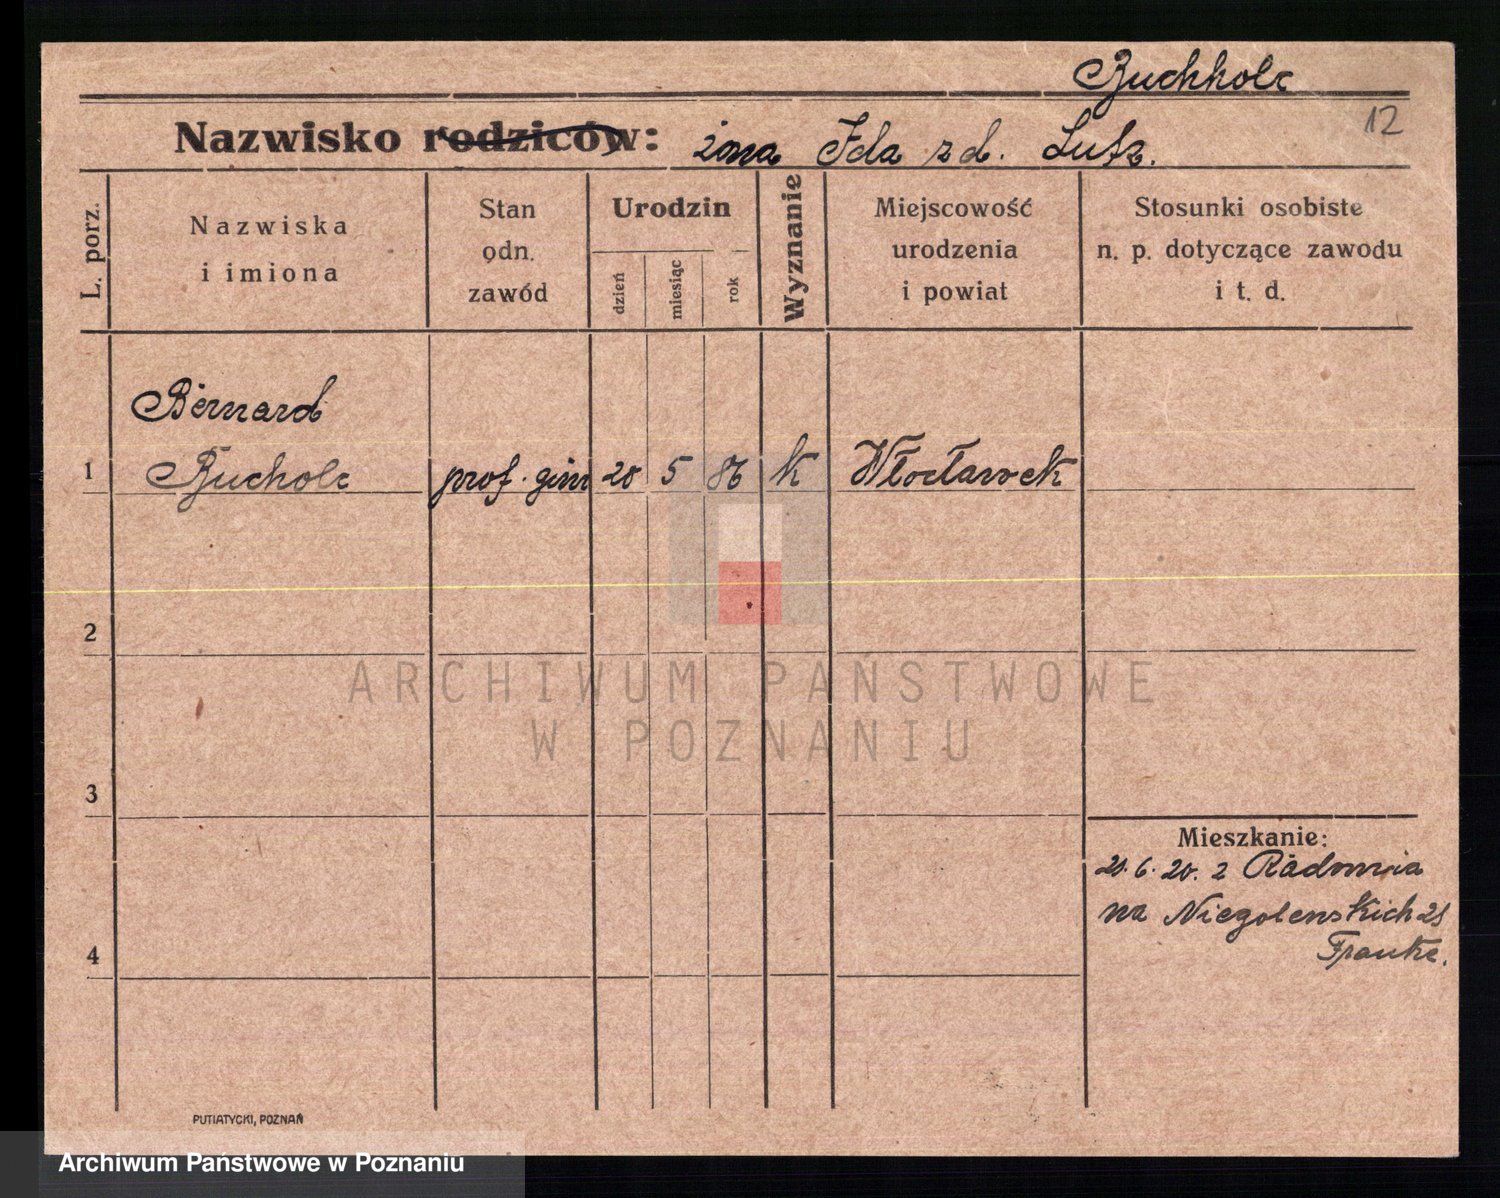 Buchholc
12
Nazwisko rodziców: żona Ida zd. Lutz.
L. porz.
Nazwiska
i imiona
Stan
odn.
zawód
Urodzin
dzień
miesiąc
rok
Wyznanie
Miejscowość
urodzenia
i powiat
Stosunki osobiste
n. p. dotyczące zawodu
i t. d.
Bernard
1 Bucholc prof. gim 20 5 86 k Włocławek
2
ARCHIWUM PAŃSTWOWE
W POZNANIU
3
Mieszkanie:
21. 6. 20. z Radomia
na Niegolewskich 21
4
PUTIATYCKI, POZNAŃ
Archiwum Państwowe w Poznaniu